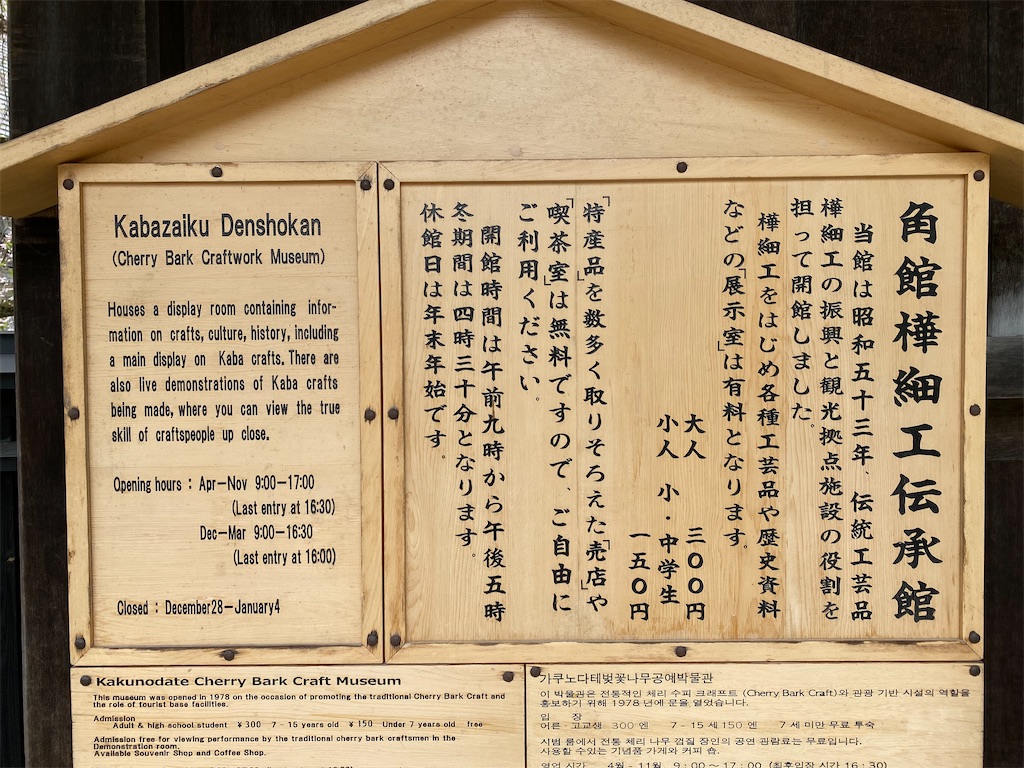 Kabazaiku Denshokan
(Cherry Bark Craftwork Museum)
Houses a display room containing infor-
mation on crafts, culture, history, including
a main display on Kaba crafts. There are
also live demonstrations of Kaba crafts
being made, where you can view the true
skill of craftspeople up close.
Opening hours : Apr−Nov 9:00−17:00
(Last entry at 16:30)
Dec−Mar 9:00−16:30
(Last entry at 16:00)
Closed : December28−January4
角館樺細工伝承館
当館は昭和五十三年、伝統工芸品
樺細工の振興と観光拠点施設の役割を
担って開館しました。
樺細工をはじめ各種工芸品や歴史資料
などの「展示室」は有料となります。
大人 三〇〇円
小人 小・中学生
一五〇円
「特産品」を数多く取りそろえた「売店」や
「喫茶室」は無料ですので、ご自由に
ご利用ください。
開館時間は午前九時から午後五時
冬期間は四時三十分となります。
休館日は年末年始です。
Kakunodate Cherry Bark Craft Museum
This museum was opened in 1978 on the occasion of promoting the traditional Cherry Bark Craft and
the role of tourist base facilities.
Admission
Adult & high school student ¥300 7 - 15 years old ¥150 Under 7 years old free
Admission free for viewing performance by the traditional cherry bark craftsmen in the
Demonstration room.
Available Souvenir Shop and Coffee Shop.
가쿠노다테벚꽃나무공예박물관
이 박물관은 전통적인 체리 수피 크래프트 (Cherry Bark Craft)와 관광 기반 시설의 역할을
홍보하기 위해 1978 년에 문을 열었습니다.
입 장
어른 · 고교생 300 엔 7 - 15 세 150 엔 7 세 미만 무료 투숙
시범 룸에서 전통 체리 나무 껍질 장인의 공연 관람료는 무료입니다.
사용할 수있는 기념품 가게와 커피 숍.
영업 시간 4월 - 11월 9:00 ~ 17:00 (최후입장 시간 16:30)